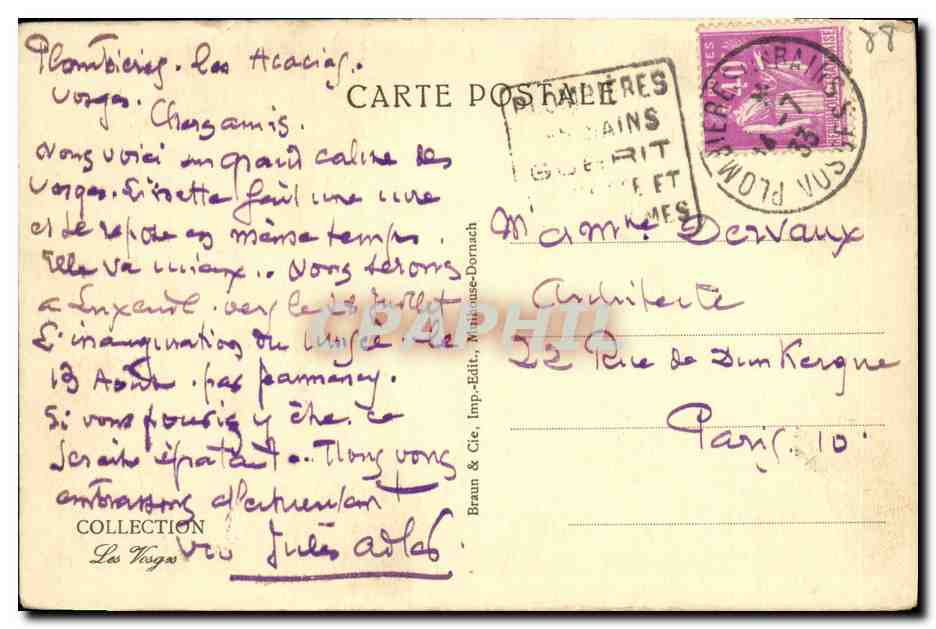 Plombières. les Acacias.
Vosges.
Chers amis.
Nous voici au grand calme des
Vosges. Lisette fait une cure
et se repose en même temps.
Elle va mieux.. Nous serons
a Luxeuil. vers le 28 Juillet
L'inauguration du musée. le
13 Août. par
Si vous pouviez y être. ce
serait épatant.. Nous vous
embrassons affectueusement
vro Jules Adler
COLLECTION
Les Vosges
CARTE POSTALE
Braun & Cie, Imp.-Edit., Mulhouse-Dornach
PLOMBIÈRES
BAINS
GUERIT
ET
POSTES
40
PLOMBIERES BAINS VOSGES
-7
33
88
Mr & Mme Dervaux
Architecte
22 Rue de Dunkerque
Paris. 10.
CPAPHIL